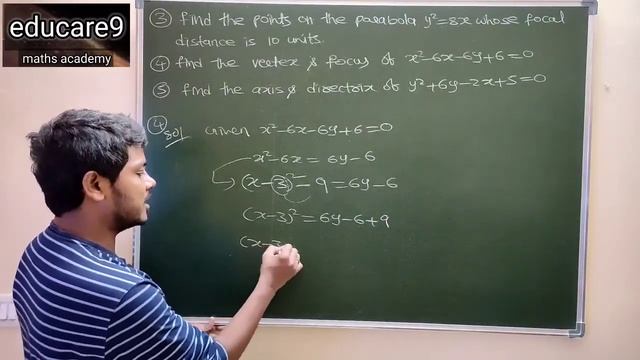 educare9
maths academy
③ Find the points on the parabola y²=8x whose focal
distance is 10 units.
④ find the vertex & focus of x²-6x-6y+6=0
⑤ find the axis & directrix of y²+6y-2x+5=0
④ Sol Given x²-6x-6y+6=0
x²-6x = 6y-6
(x-3)²-9 = 6y-6
(x-3)² = 6y-6+9
(x-3